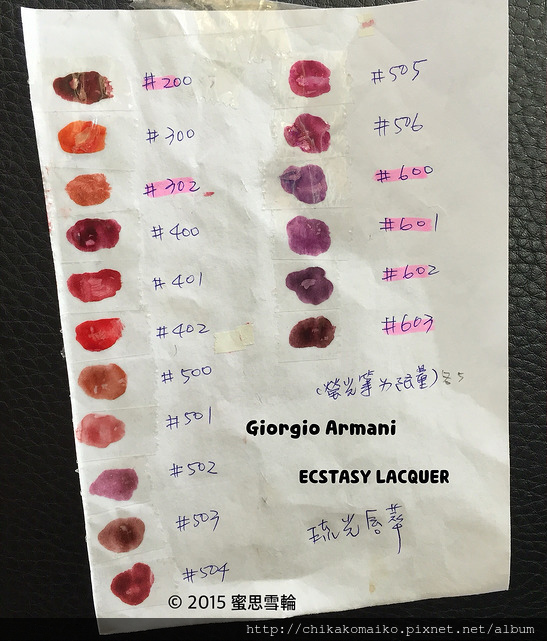 #200
#300
#302
#400
#401
#402
#500
#501
#502
#503
#504
#505
#506
#600
#601
#602
#603
(螢光筆為限量)
Giorgio Armani
ECSTASY LACQUER
琉光唇萃
© 2015 蜜思雪輪
http://chikakomaiko.pixnet.net/album